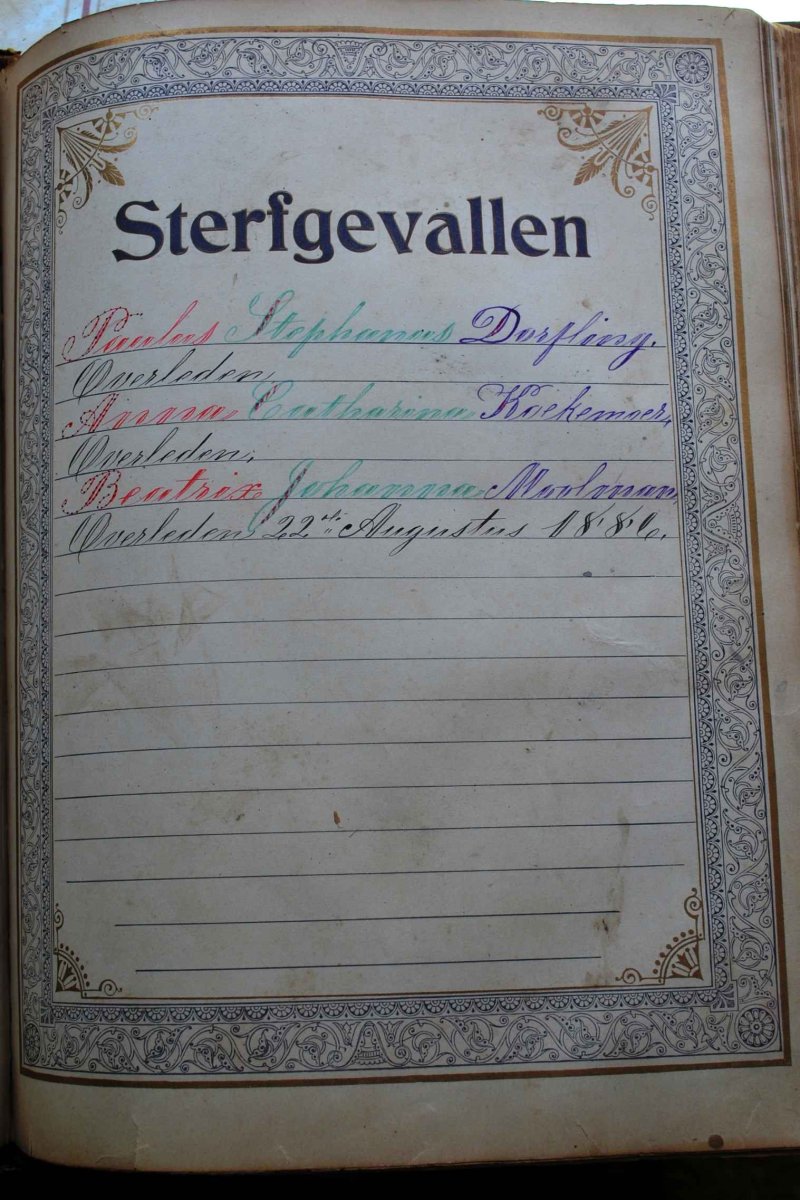 Sterfgevallen
Paulus Stephanas Dorfling.
Overleden,
Anna Catharina Koekemoer,
Overleden,
Beatrix Johanna Moolman,
Overleden 22ste Augustus 1886.